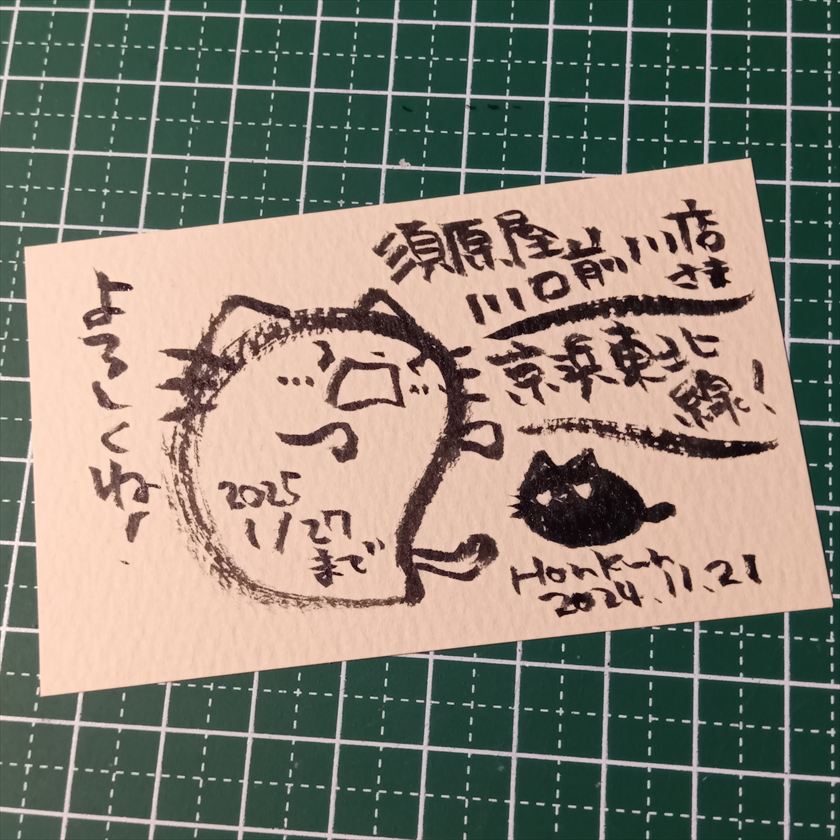 須原屋
川口前川店
さま
京浜東北
線!
よろしくね!
2025
1/27
まで
Honkun
2024.11.21